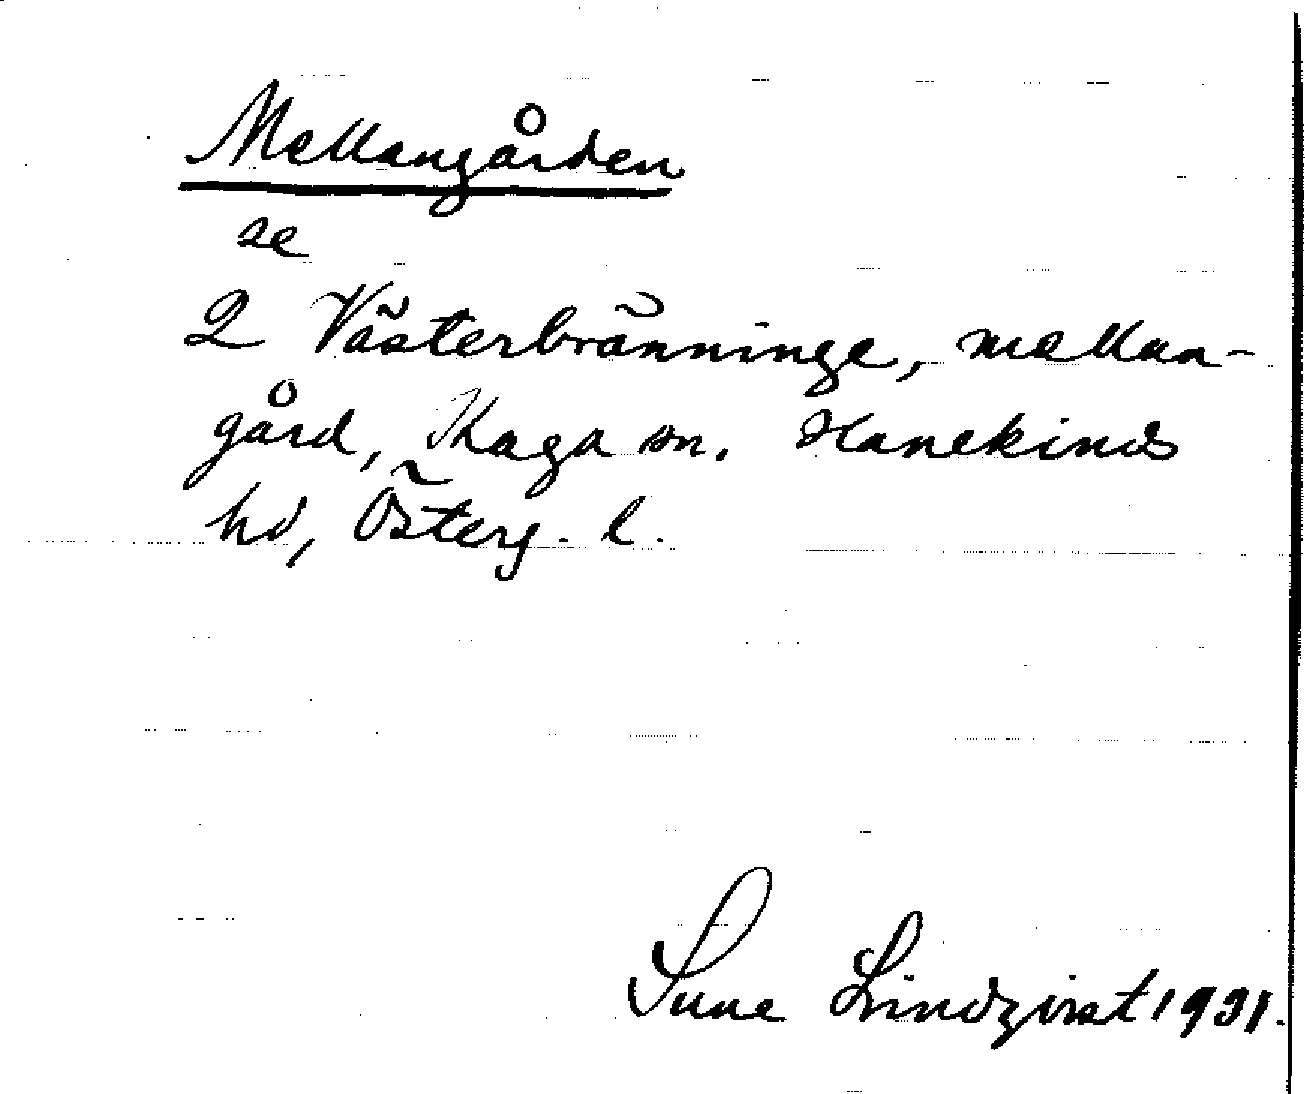 Mellangården
se
2 Västerbränninge, mellan-
gård, Kaga sn. Hanekinds
hd, Österg. l.
Sune Lindqvist 1931.